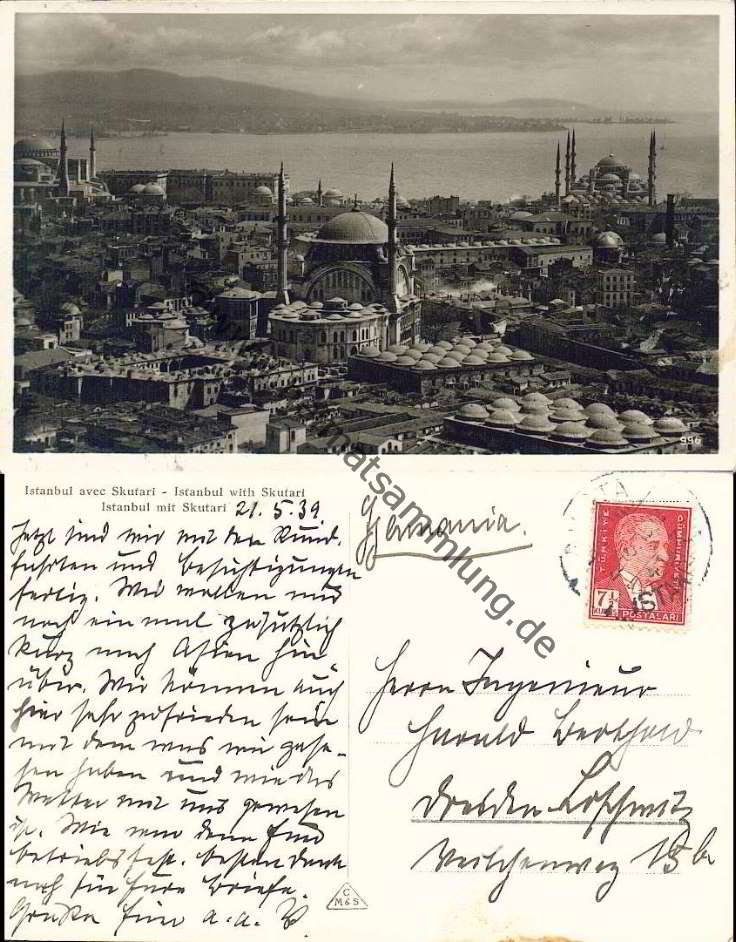 996
Istanbul avec Skutari - Istanbul with Skutari
Istanbul mit Skutari 21.5.39
Jetzt sind wir mit den Rund-
fahrten und Besichtigungen
fertig. Wir wollen nur
noch einmal zusätzlich
kurz nach Asien hin
über. Wir können auch
hier sehr zufrieden sein
mit dem was wir gese-
hen haben und wie das
Wetter mit uns gewesen
ist. Wie war denn Euer
Betriebsfest. Besten Dank
noch für Eure Briefe.
Grüße
C
M&S
Germania.
TÜRKİYE
CÜMHURİYETİ
7½
POSTALARI
Herrn Ingenieur
Harald Berthold
Dresden Loschwitz
Veilchenweg 15b
matsammlung.de